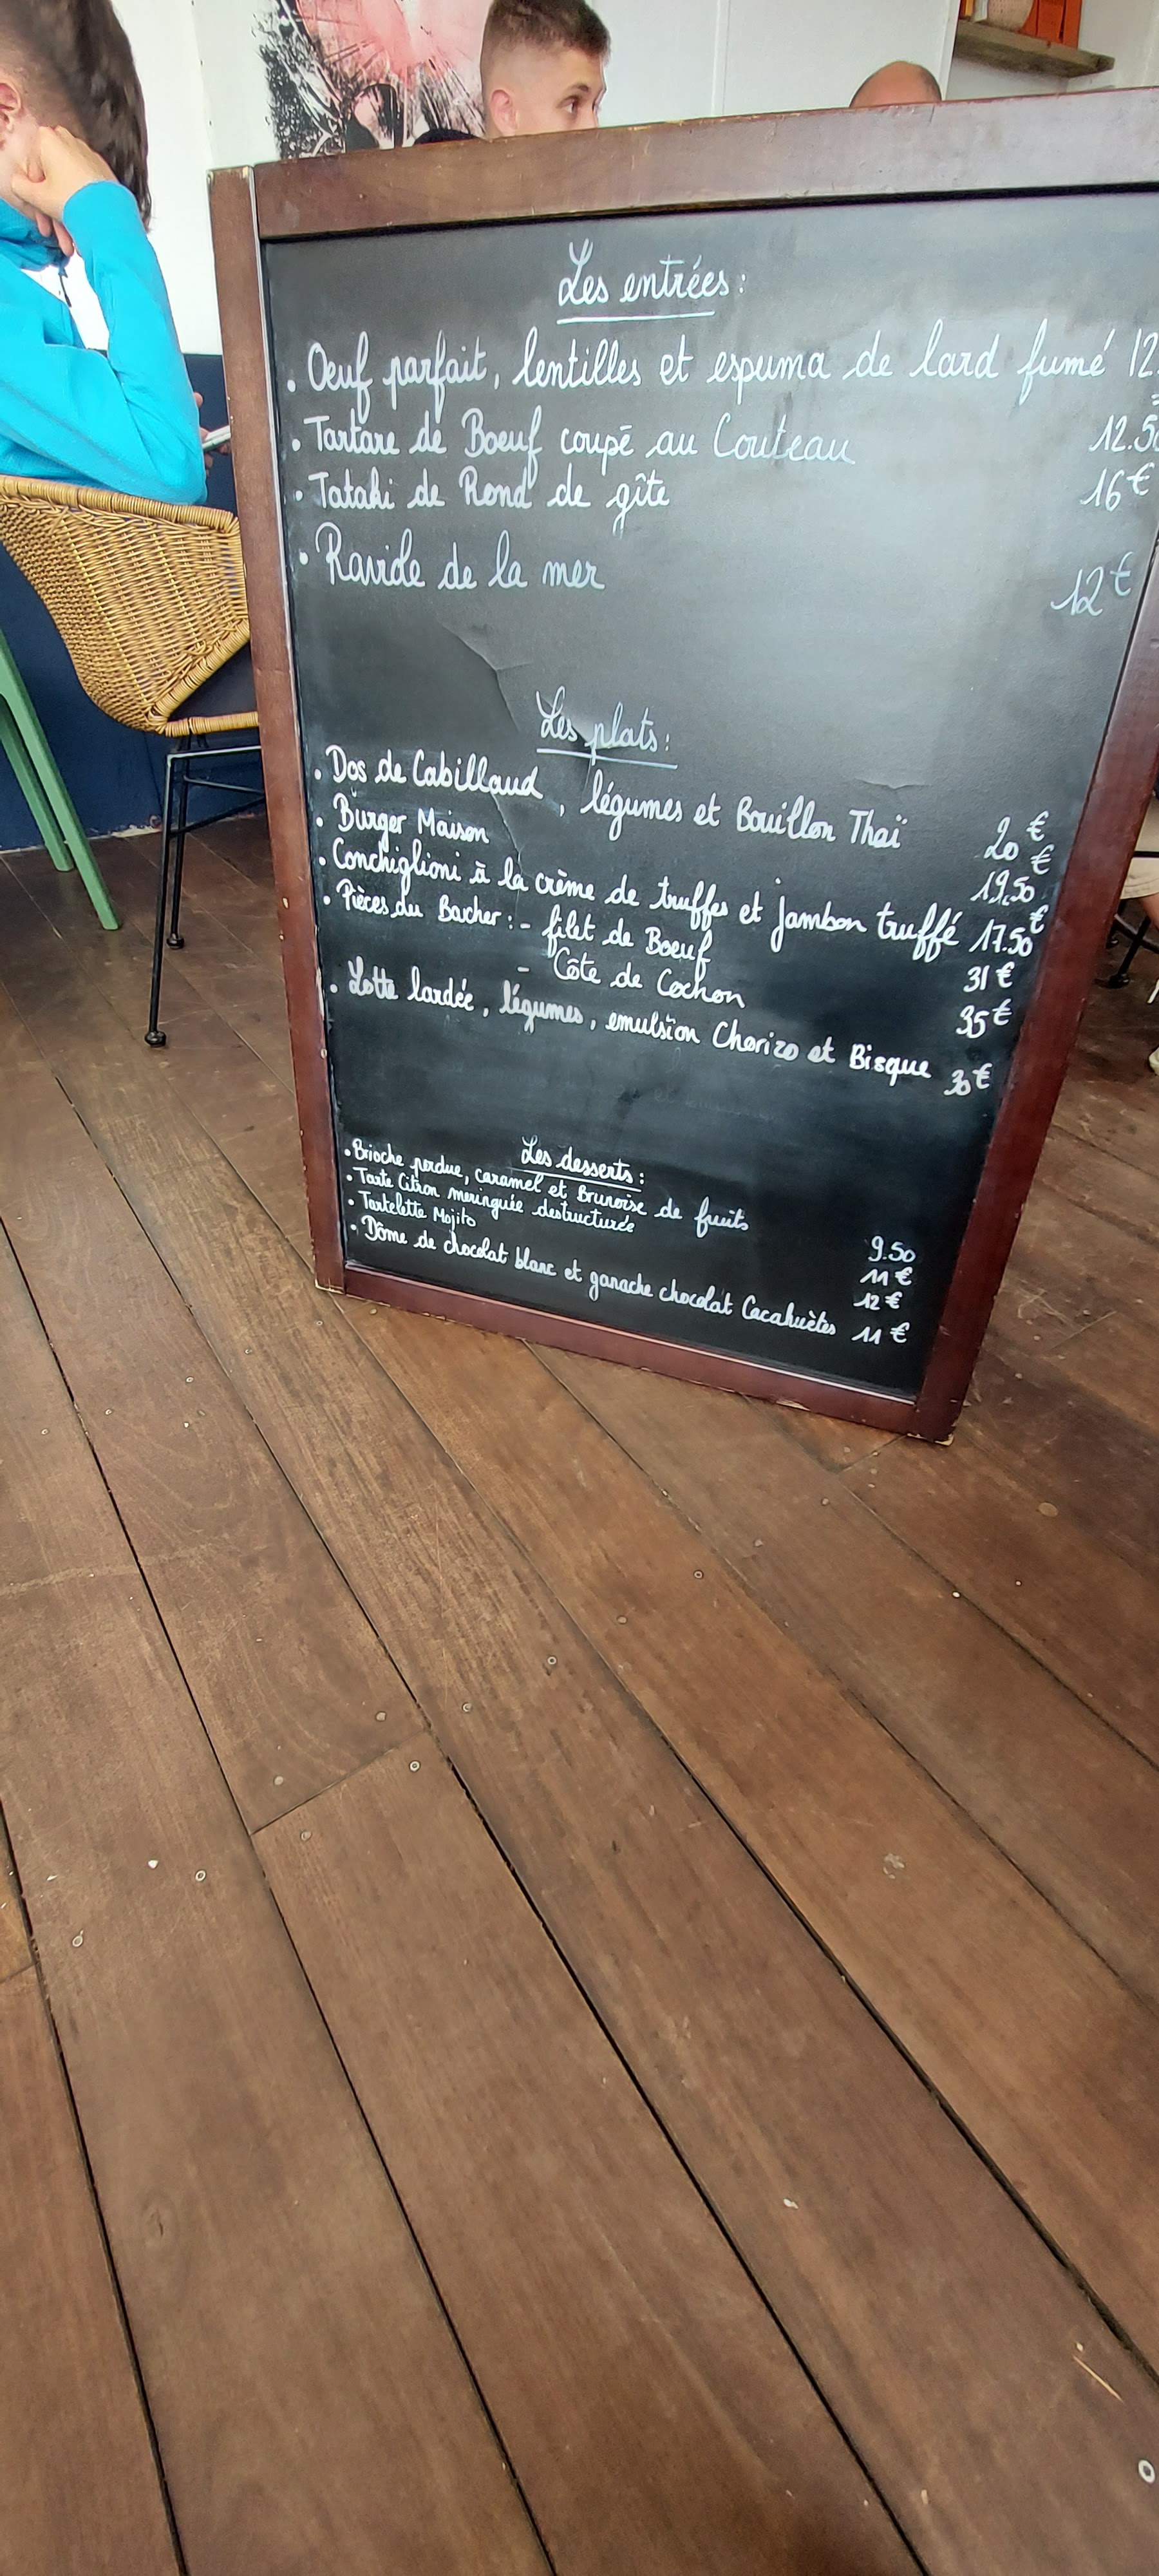 Les entrées :
. Oeuf parfait, lentilles et espuma de lard fumé 12
. Tartare de Boeuf coupé au Couteau 12.5
. Tataki de Rond de gîte 16 €
. Raviole de la mer 12 €
Les plats :
. Dos de Cabillaud, légumes et Bouillon Thaï 20 €
. Burger Maison 19,50 €
. Conchiglioni à la crème de truffes et jambon truffé 17.50 €
. Pièces du Boucher : - filet de Boeuf 31 €
- Côte de Cochon 35 €
. Lotte lardée, légumes, emulsion Chorizo et Bisque 30 €
Les desserts :
. Brioche perdue, caramel et Brunoise de fruits 9.50
. Tarte Citron meringuée destructurée 11 €
. Tartelette Mojito 12 €
. Dôme de chocolat blanc et ganache chocolat Cacahuètes 11 €